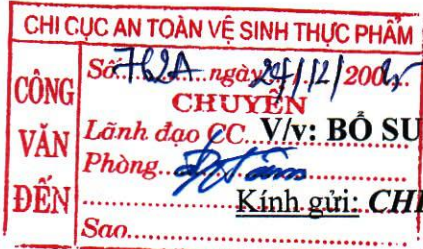 CHI CỤC AN TOÀN VỆ SINH THỰC PHẨM
CÔNG VĂN ĐẾN
Số ngày 24/12/200
CHUYỂN
Lãnh đạo CC V/v: BỔ SU
Phòng
Kính gửi: CHI
Sao